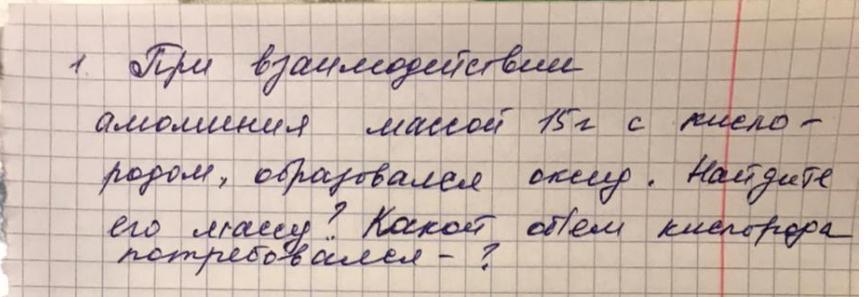 1. При взаимодействии
амоминия массой 15г с кисло-
родом, образовался оксид. Найдите
его массу? Какой объем кислорода
потребовался - ?